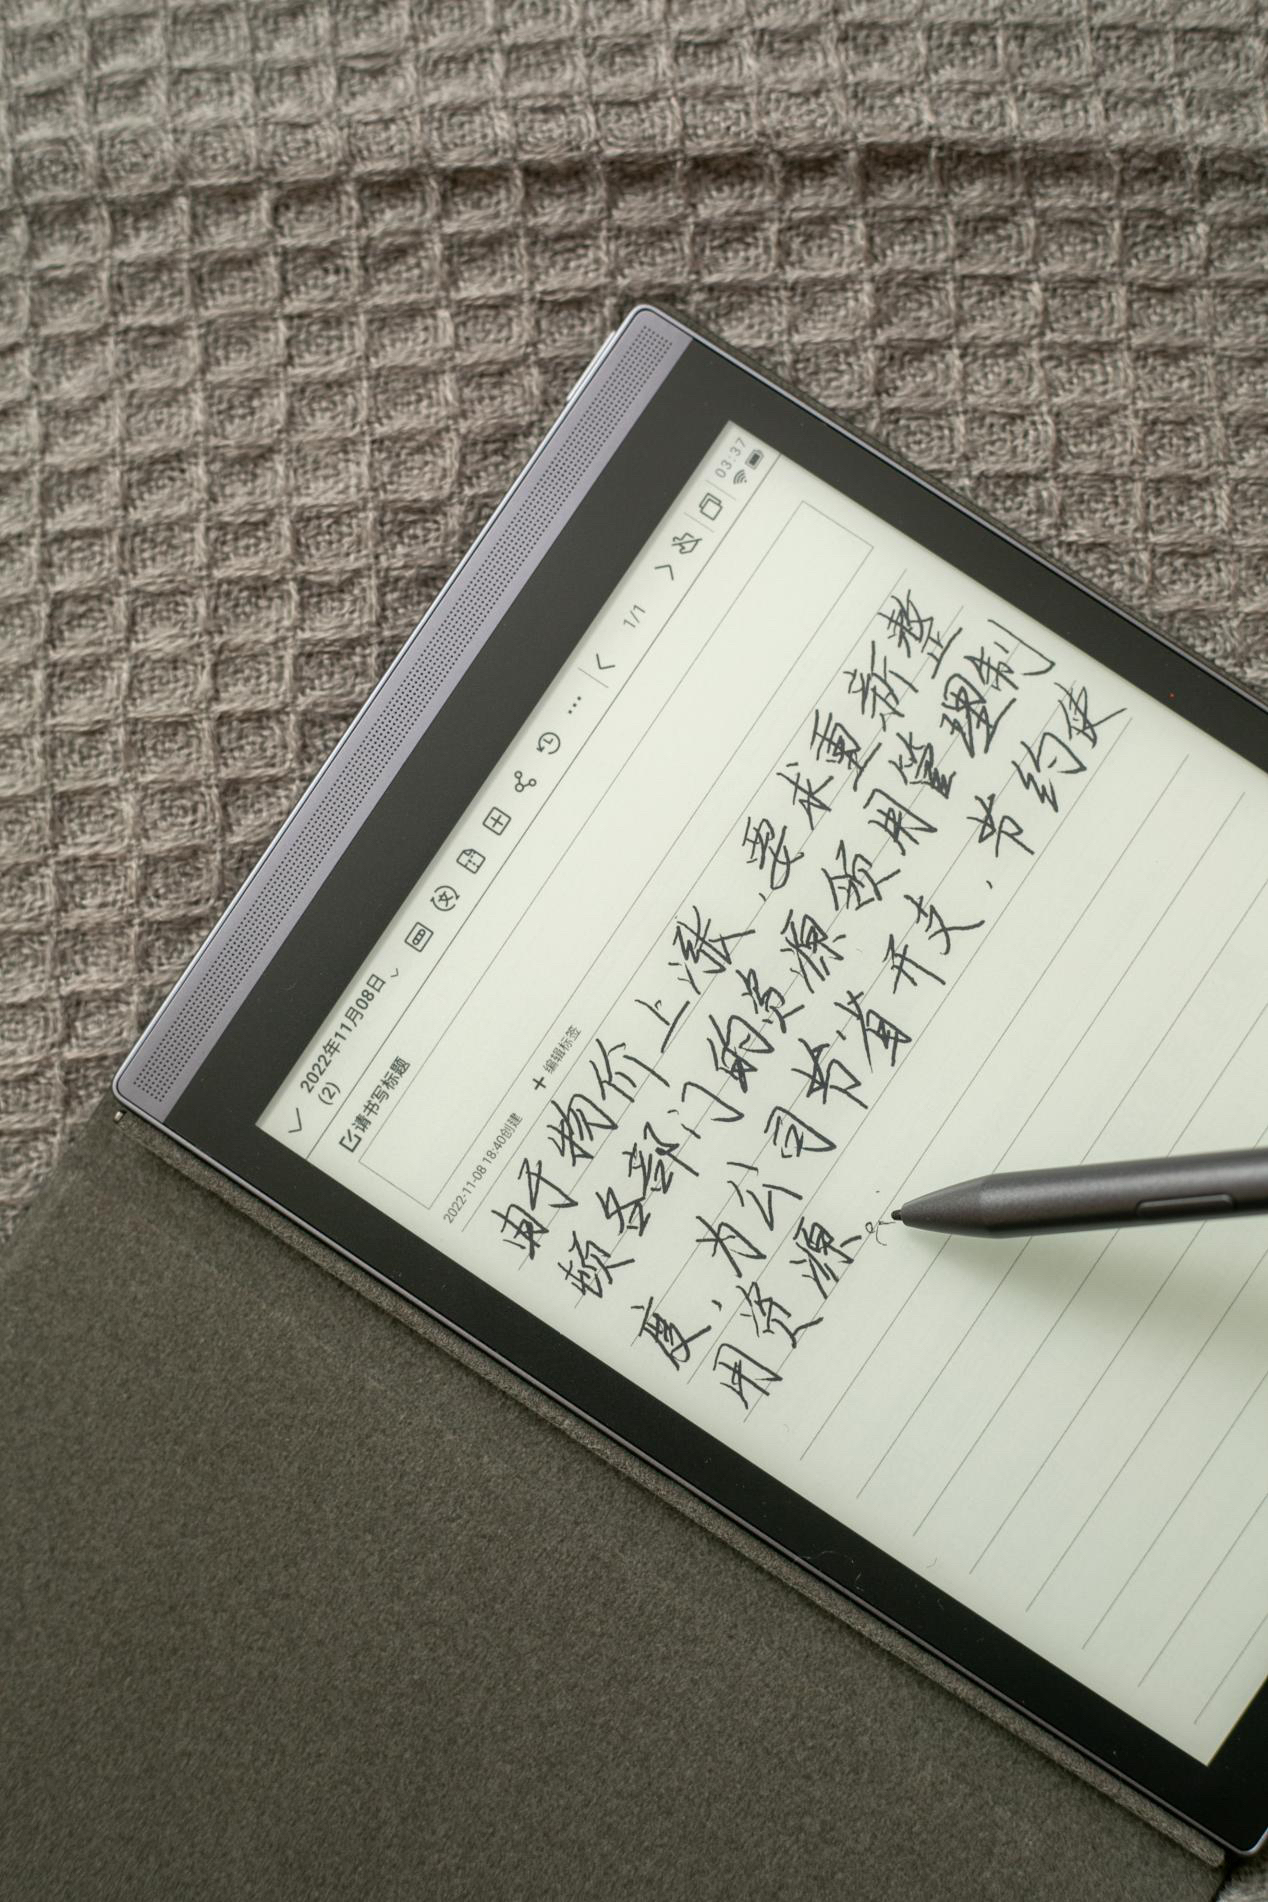 03:37
2022年11月08日
(2)
1/1
请书写标题
2022-11-08 18:40创建
+ 编辑标签
由于物价上涨,要求重新整
顿各部门的资源领用管理制
度,为公司节省开支,节约使
用资源。